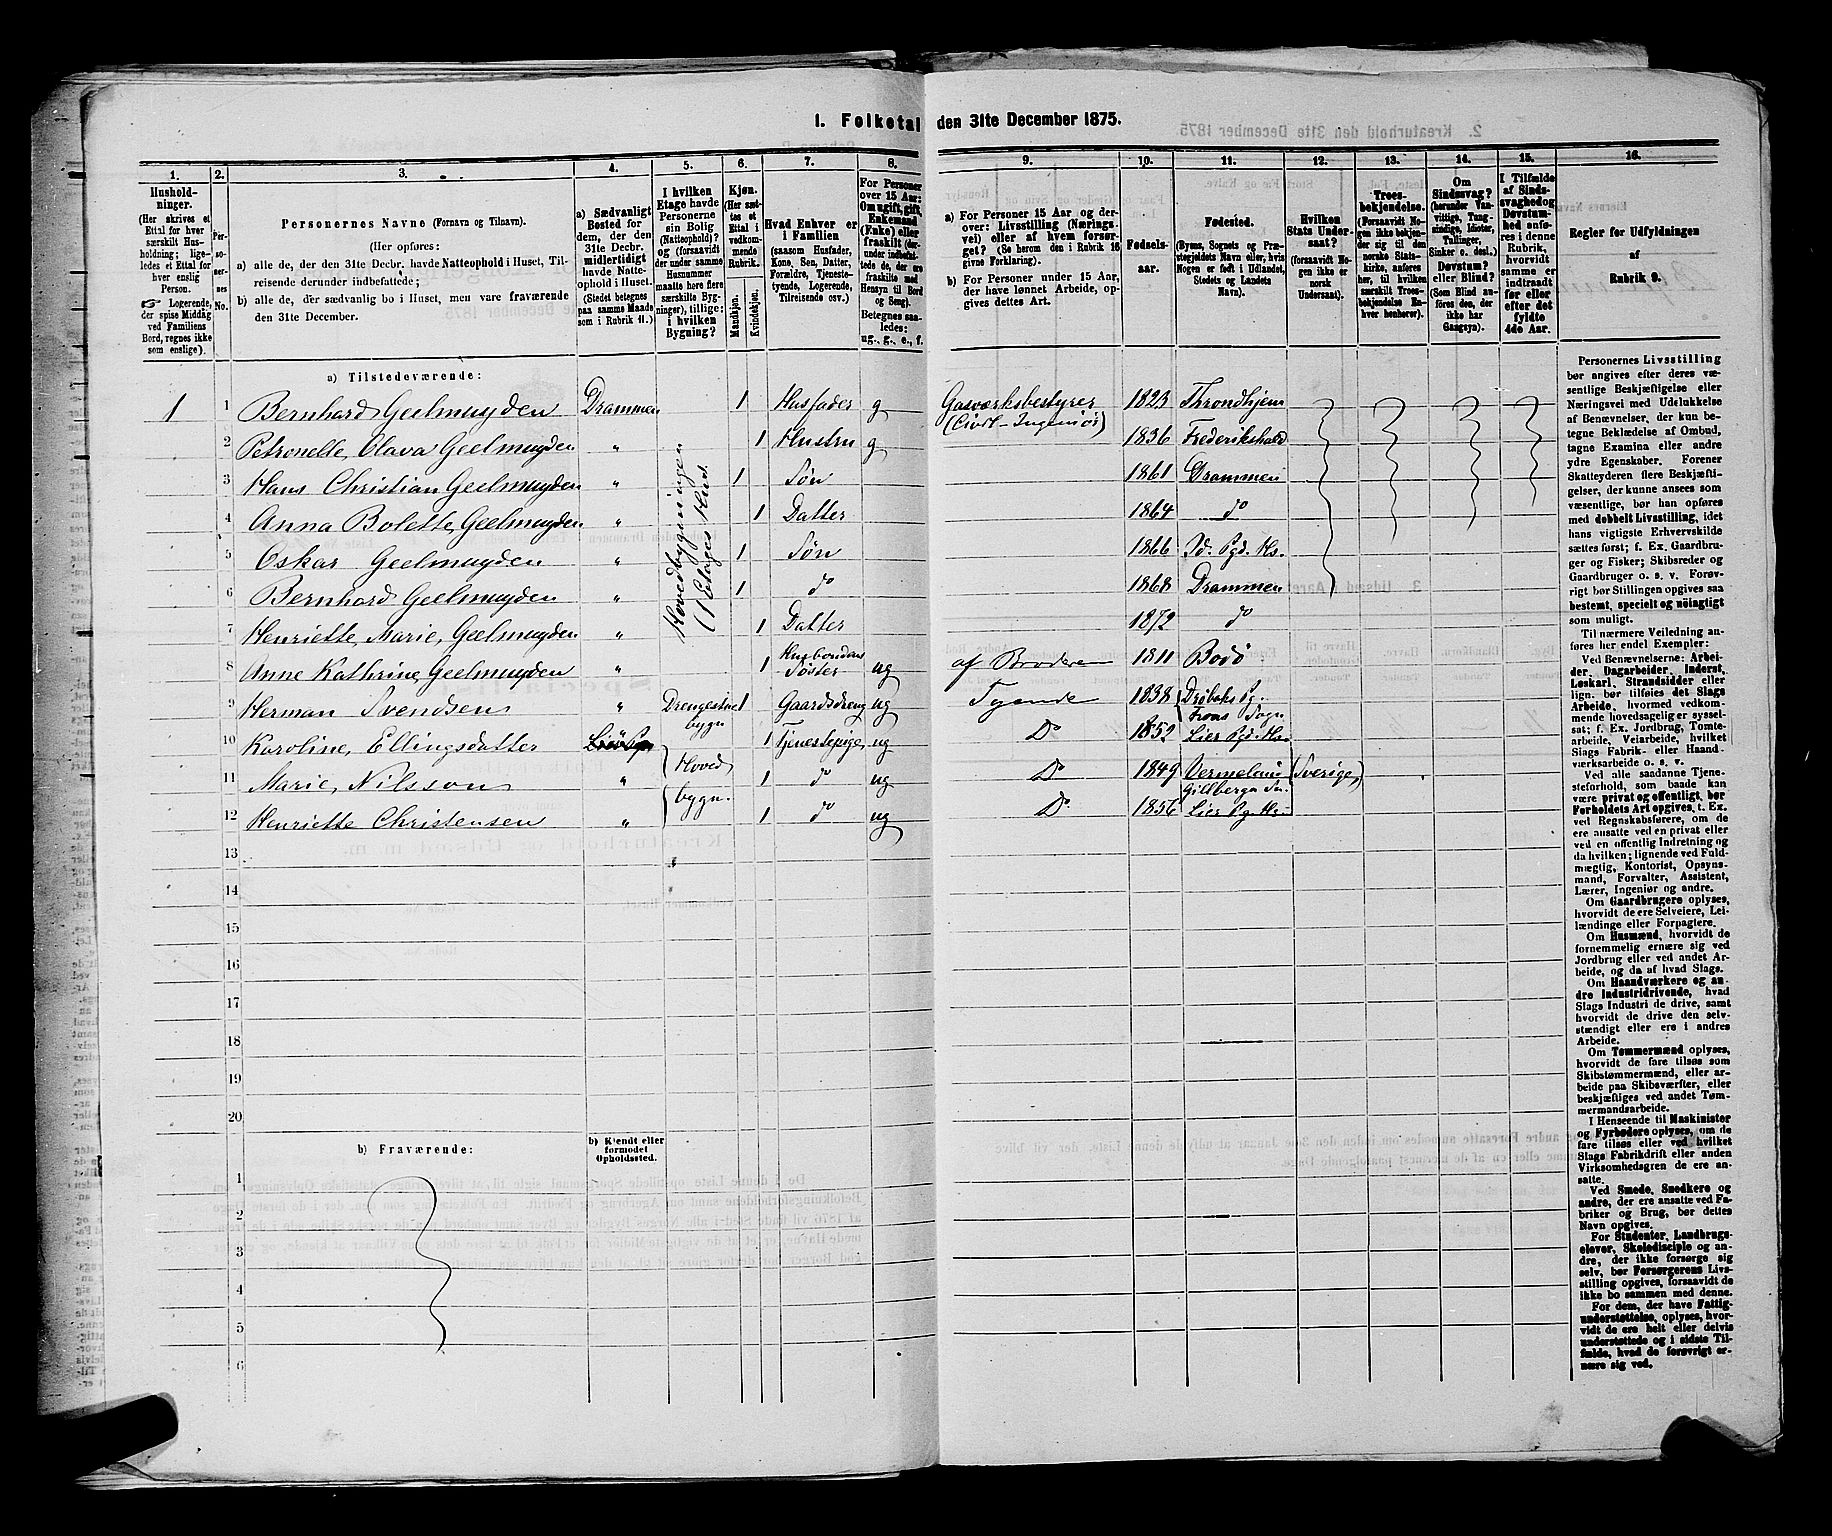 1. Folketal den 31te December 1875.
1. 2. 3. 4. 5. 6. 7. 8. 9. 10. 11. 12. 13. 14. 15. 16.
Husholdninger.
(Her skrives et Ettal for hver særskilt Husholdning; ligeledes et Ettal for hver enslig Person.
☞ Logerende, der spise Middag ved Familiens Bord, regnes ikke som enslige).
Personernes No.
Personernes Navne (Fornavn og Tilnavn).
(Her opføres:
a) alle de, der den 31te Decbr. havde Natteophold i Huset, Tilreisende derunder indbefattede;
b) alle de, der sædvanlig bo i Huset, men vare fraværende den 31te December.
a) Sædvanligt Bosted for dem, der den 31te Decbr. midlertidigt havde Natteophold i Huset.
(Stedet betegnes paa samme Maade som i Rubrik 11.)
I hvilken Etage havde Personerne sin Bolig (Natteophold)? og (forsaavidt der under samme Husnummer maatte høre flere særskilte Bygninger), tillige: i hvilken Bygning?
Kjøn.
(Her sættes et Ettal i vedkommende Rubrik.
Mandkjøn.
Kvindekjøn.
Hvad Enhver er i Familien
(saasom Husfader, Kone, Søn, Datter, Forældre, Tjenestetyende, Logerende, Tilreisende osv.)
For Personer over 15 Aar: Om ugift, gift, Enkemand (Enke) eller fraskilt (derunder indbefattede de, der ere fraskilte med Hensyn til Bord og Seng).
Betegnes saaledes:
ug., g., e., f.
a) For Personer 15 Aar og derover: Livsstilling (Næringsvei) eller af hvem forsørget? (Se herom den i Rubrik 16 givne Forklaring).
b) For Personer under 15 Aar, der have lønnet Arbeide, opgives dettes Art.
Fødselsaar.
Fødested.
(Byens, Sognets og Præstegjeldets Navn eller, hvis Nogen er født i Udlandet, Stedets og Landets Navn).
Hvilken Stats Undersaat?
(forsaavidt Nogen ikke er norsk Undersaat).
Troesbekjendelse.
(Forsaavidt Nogen ikke bekjender sig til den norske Statskirke, anføres her, til hvilken særskilt Troesbekjendelse Enhver henhører).
Om Sindssvag? (herunder Vanvittige, Tungsindige, Idioter, Tullinger, Sinker o. desl.). Døvstum? eller Blind?
(Som Blind anføres den, der ikke har Gangsyn).
I Tilfælde af Sindssvaghed og Døvstumhed anføres i denne Rubrik, hvorvidt samme er indtraadt før eller efter det fyldte 4de Aar.
Regler for Udfyldningen af Rubrik 9.
a) Tilstedeværende:
1 1 Bernhard Geelmuyden Drammen 1 Husfader g Gasværksbestyrer (Civil-Ingeniør) 1823 Throndhjem
2 Petronelle Olava Geelmuyden " 1 Hustru g 1836 Frederikshald
3 Hans Christian Geelmuyden " 1 Søn 1861 Drammen
4 Anna Bolette Geelmuyden " 1 Datter 1864 do
5 Oskar Geelmuyden " 1 Søn 1866 Id. Pgd. Hs.
6 Bernhard Geelmuyden " 1 do 1868 Drammen
7 Henriette Marie Geelmuyden " 1 Datter 1872 do
Hovedbygningen (1 Etages Hus.
8 Anne Kathrine Geelmuyden " 1 Husbondens Søster ug af Broderen 1811 Bodö
9 Herman Svendsen " Drengestue bygn 1 Gaardsdreng ug Tyende 1838 Drøbaks Pg. Frons Sogn
10 Karoline Ellingsdatter 1 Tjenestepige ug Do 1852 Lier Pgd. Hs.
11 Marie Nilsson " Hoved bygn. 1 do ug Do 1849 Vermeland (Sverige) Gillberga Sn.
12 Henriette Christensen " 1 do ug Do 1856 Lier Pg. Hs.
13
14
15
16
17
18
19
20
b) Fraværende:
b) Kjendt eller formodet Opholdssted.
1
2
3
4
5
6
Personernes Livsstilling
bør angives efter deres væ-
sentlige Beskjæftigelse eller
Næringsvei med Udelukkelse
af Benævnelser, der kun be-
tegne Beklædelse af Ombud,
tagne Examina eller andre
ydre Egenskaber. Forener
Skatteyderen flere Beskjæfti-
gelser, der kunne ansees som
væsentlige, bør han opføres
med dobbelt Livsstilling, idet
hans vigtigste Erhvervskilde
sættes først; f. Ex. Gaardbru-
ger og Fisker; Skibsreder og
Gaardbruger o. s. v. Forøv-
rigt bør Stillingen opgives saa
bestemt, specielt og nöiagtigt
som muligt.
Til nærmere Veiledning an-
føres her endel Exempler:
Ved Benævnelserne: Arbei-
der, Dagarbeider, Inderst,
Løskarl, Strandsidder eller
lign. bør tilføies det Slags
Arbeide, hvormed vedkom-
mende hovedsagelig er syssel-
sat; f. Ex. Jordbrug, Tomte-
arbeide, Veiarbeide, hvilket
Slags Fabrik- eller Haand-
værksarbeide o. s. v.
Ved alle saadanne Tjene-
steforhold, som baade kan
være privat og offentligt, bør
Forholdets Art opgives, f. Ex.
ved Regnskabsførere, om de
ere ansatte ved en privat eller
ved en offentlig Indretning og
da hvilken; lignende ved Fuld-
mægtig, Kontorist, Opsyns-
mand, Forvalter, Assistent,
Lærer, Ingeniør og andre.
Om Gaardbrugere oplyses,
hvorvidt de ere Selveiere, Lei-
lændinge eller Forpagtere.
Om Husmænd, hvorvidt de
fornemmelig ernære sig ved
Jordbrug eller ved andet Ar-
beide, og da af hvad Slags.
Om Haandværkere og an-
dre Industridrivende, hvad
Slags Industri de drive, samt
hvorvidt de drive den selv-
stændigt eller ere i andres
Arbeide.
Om Tømmermænd oplyses,
hvorvidt de fare tilsøs som
Skibstømmermænd, eller ar-
beide paa Skibsværfter, eller
beskjæftiges ved andet Tøm-
mermandsarbeide.
I Henseende til Maskinister
og Fyrbødere oplyses, om de
fare tilsøs eller ved hvilket
Slags Fabrikdrift eller anden
Virksomhedsgren de ere an-
satte.
Ved Smede, Snedkere og
andre, der ere ansatte ved Fa-
briker og Brug, bør dettes
Navn opgives.
For Studenter, Landbrugs-
elever, Skoledisciple og an-
dre, der ikke forsørge sig
selv, bør Forsørgerens Livs-
stilling opgives, forsaavidt de
ikke bo sammen med denne.
For dem, der have Fattig-
understøttelse, oplyses, hvor-
vidt de ere helt eller delvis
understøttede og i sidste Til-
fælde, hvad de forøvrigt er-
nære sig ved.